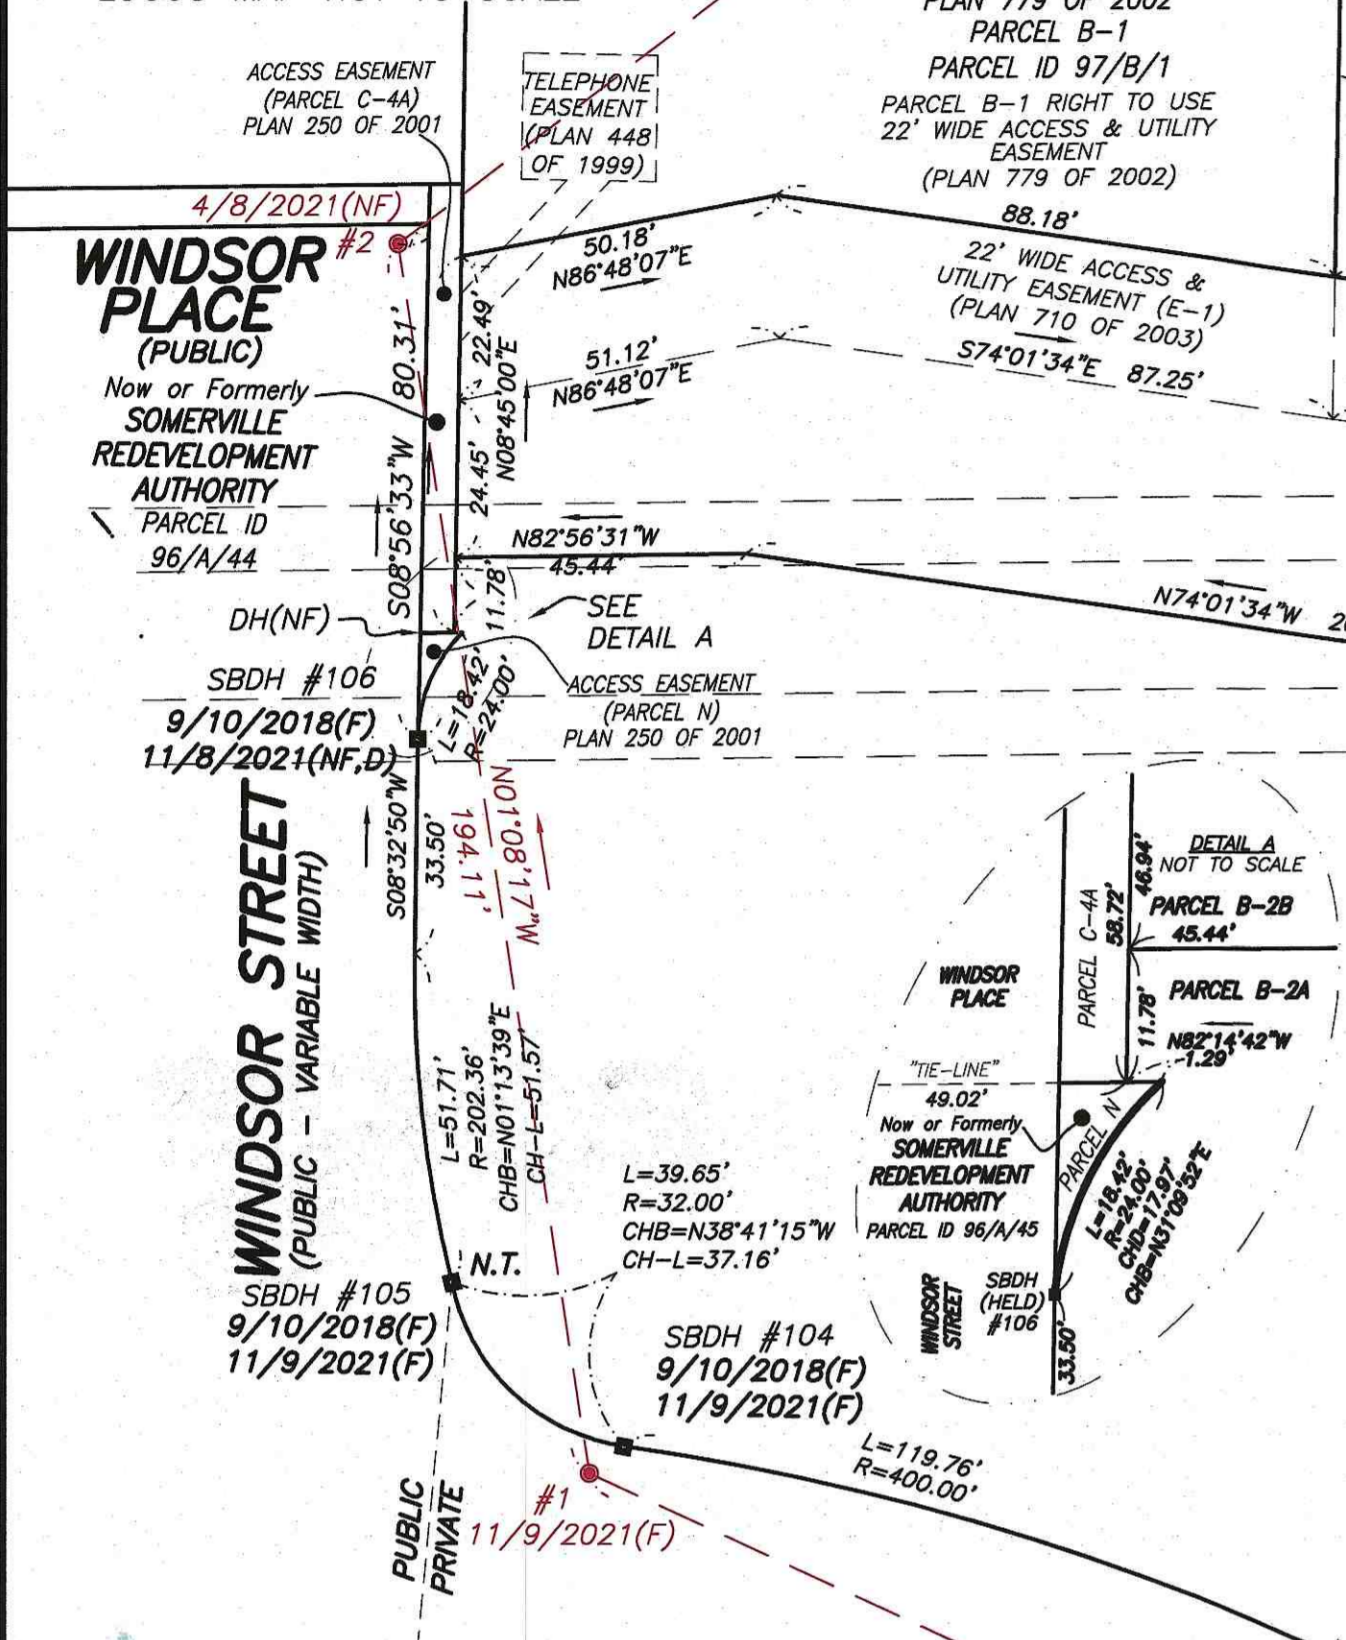 PLAN 779 OF 2002
PARCEL B-1
PARCEL ID 97/B/1
PARCEL B-1 RIGHT TO USE
22' WIDE ACCESS & UTILITY
EASEMENT
(PLAN 779 OF 2002)
ACCESS EASEMENT
(PARCEL C-4A)
PLAN 250 OF 2001
TELEPHONE
EASEMENT
(PLAN 448
OF 1999)
4/8/2021(NF)
#2
WINDSOR
PLACE
(PUBLIC)
Now or Formerly
SOMERVILLE
REDEVELOPMENT
AUTHORITY
PARCEL ID
96/A/44
80.31'
S08°56'33"W
22.49'
N08°45'00"E
24.45'
50.18'
N86°48'07"E
51.12'
N86°48'07"E
88.18'
22' WIDE ACCESS &
UTILITY EASEMENT (E-1)
(PLAN 710 OF 2003)
S74°01'34"E 87.25'
N82°56'31"W
45.44'
N74°01'34"W
11.78'
SEE
DETAIL A
DH(NF)
SBDH #106
9/10/2018(F)
11/8/2021(NF,D)
L=18.42'
R=24.00'
ACCESS EASEMENT
(PARCEL N)
PLAN 250 OF 2001
WINDSOR STREET
(PUBLIC - VARIABLE WIDTH)
S08°32'50"W
33.50'
N01°08'17"W
194.11'
L=51.71'
R=202.36'
CHB=N01°13'39"E
CH-L=51.57'
L=39.65'
R=32.00'
CHB=N38°41'15"W
CH-L=37.16'
N.T.
SBDH #105
9/10/2018(F)
11/9/2021(F)
SBDH #104
9/10/2018(F)
11/9/2021(F)
L=119.76'
R=400.00'
#1
11/9/2021(F)
PUBLIC
PRIVATE
DETAIL A
NOT TO SCALE
46.94'
PARCEL C-4A
58.72'
PARCEL B-2B
45.44'
WINDSOR
PLACE
11.78'
PARCEL B-2A
N82°14'42"W
1.29'
"TIE-LINE"
49.02'
Now or Formerly
SOMERVILLE
REDEVELOPMENT
AUTHORITY
PARCEL ID 96/A/45
PARCEL N
L=18.42'
R=24.00'
CHD=17.97'
CHB=N31°09'52"E
WINDSOR
STREET
SBDH
(HELD)
#106
33.50'